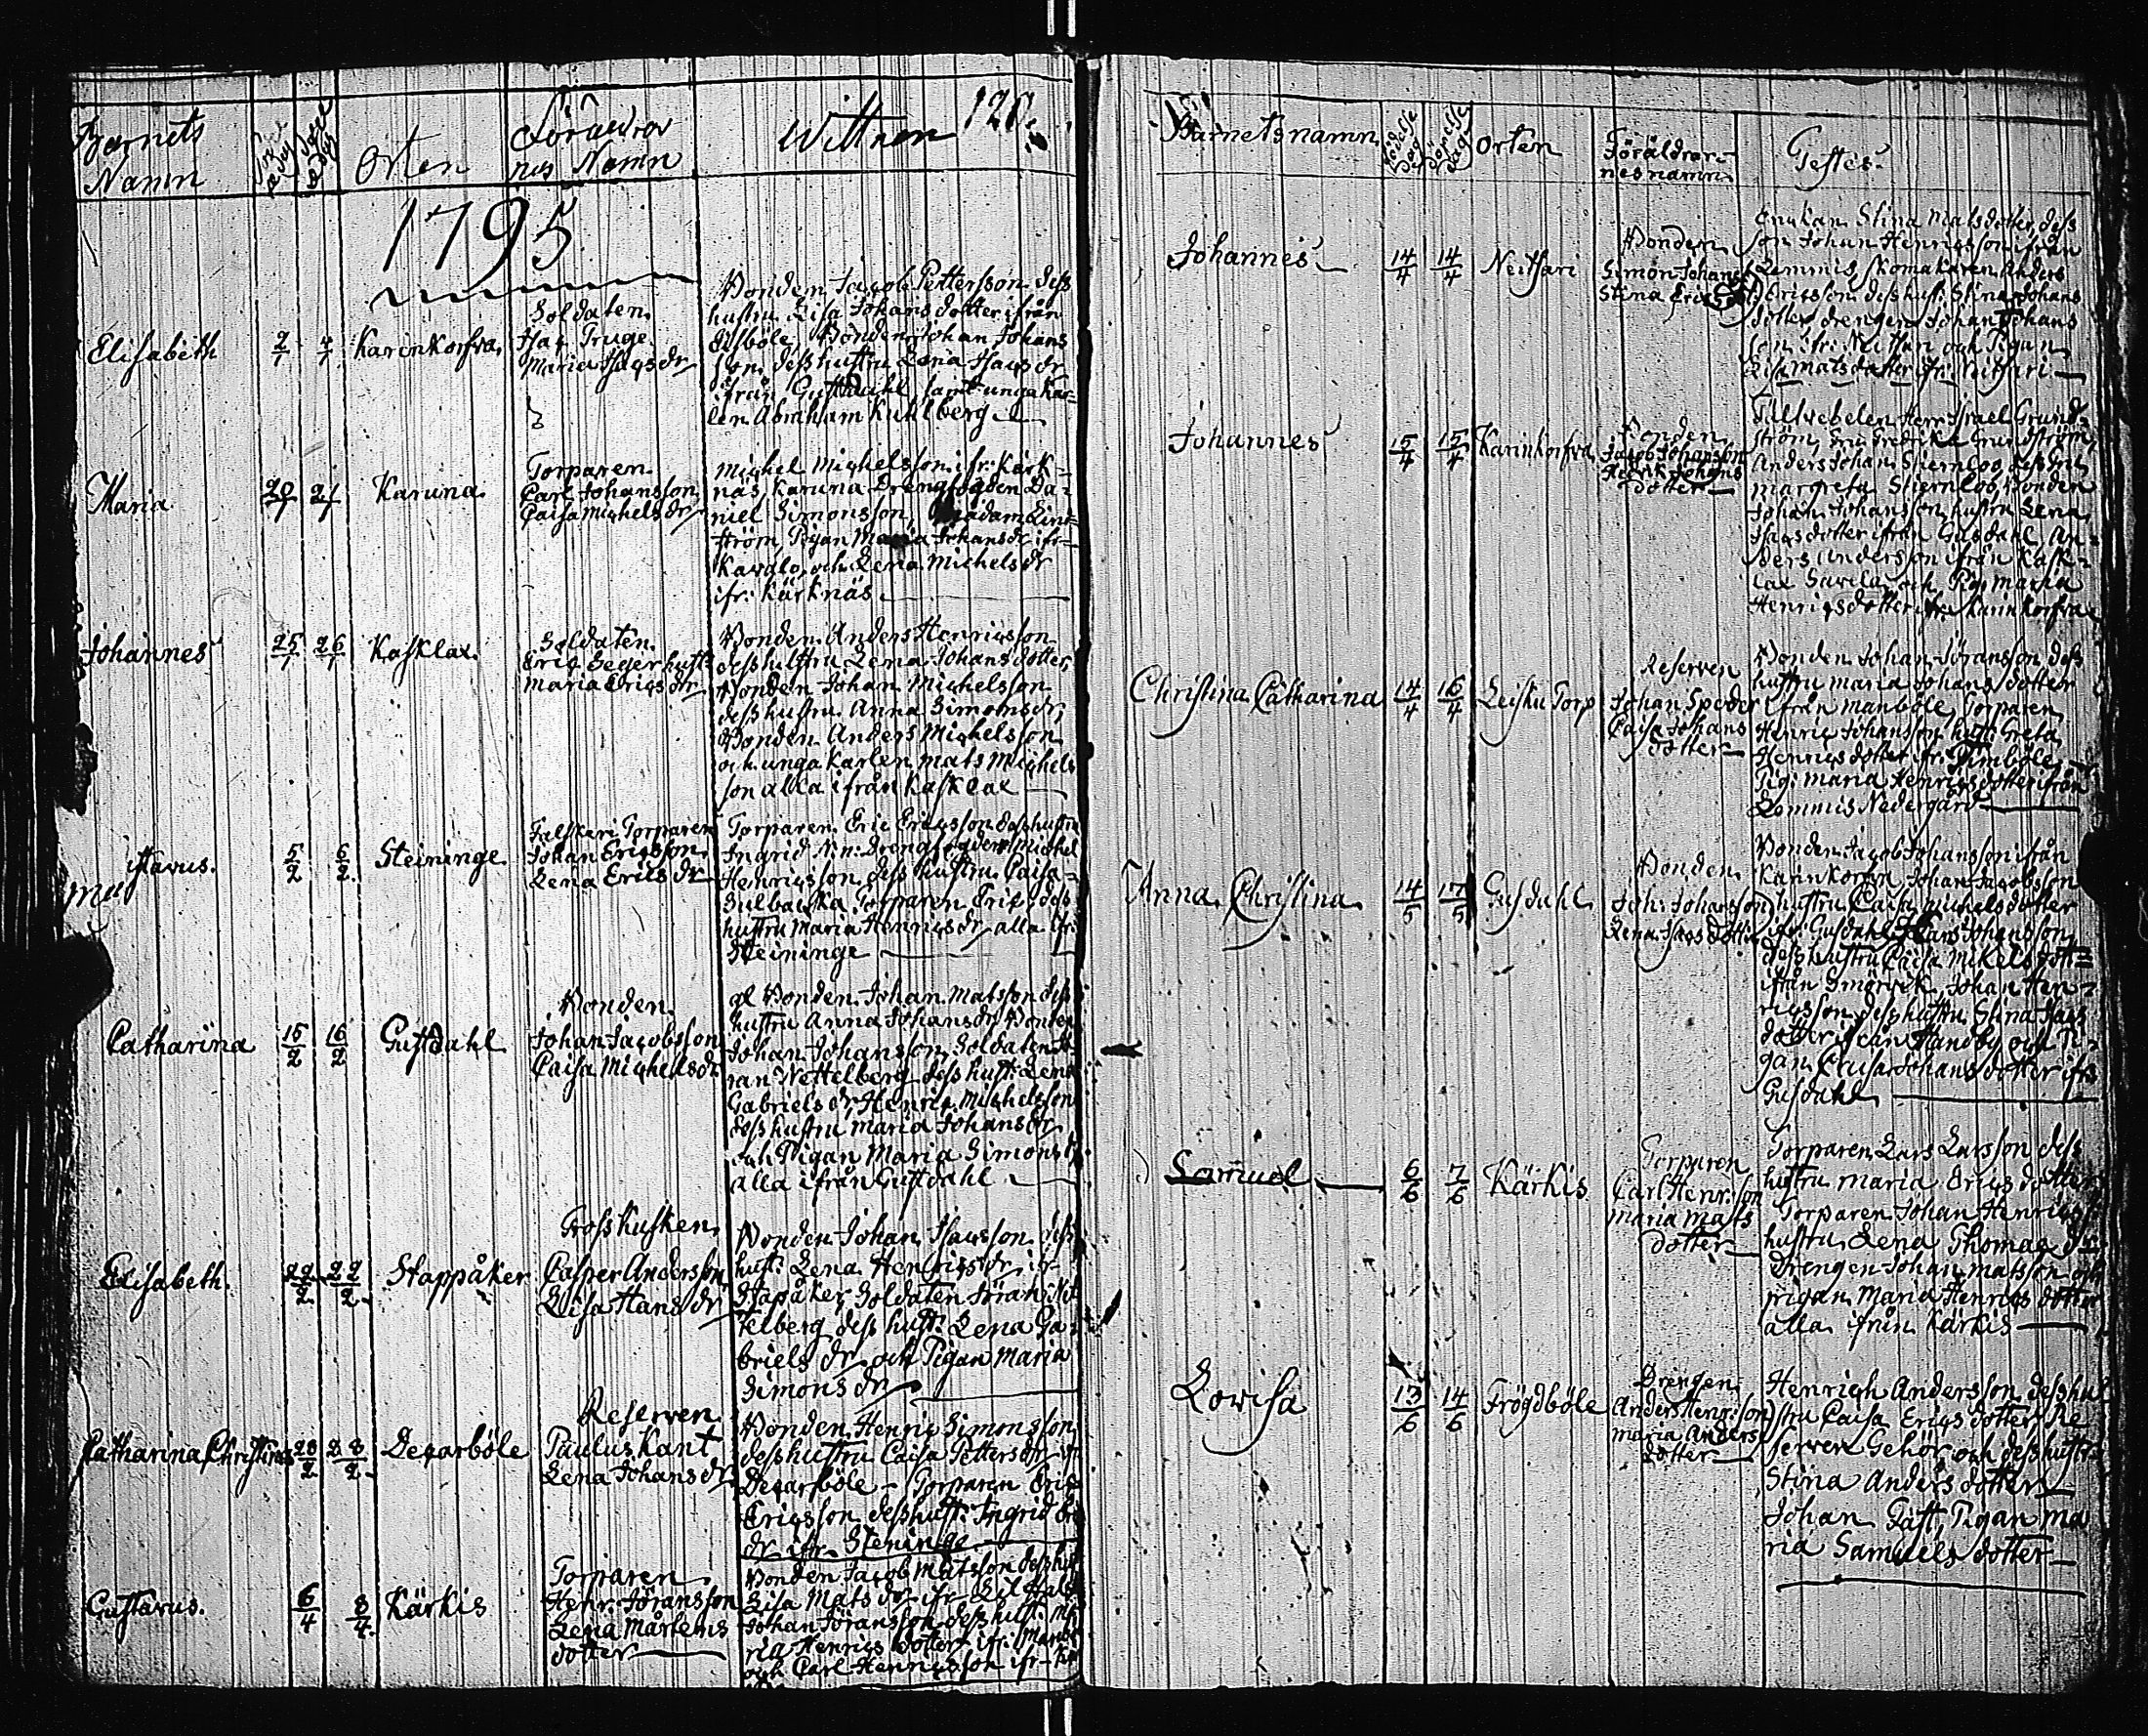 Barnets
Namn
Orten
Föräldrar
nas Namn
Wittnen
1795
Elisabeth
2/1 4/1
Karinkorfva
Soldaten
Isac Truge
Maria Isaqs dr
Bonden Jacob Pettersson dess
hustru Lisa Johans dotter ifrån
Bonden Johan Johans
son dess hustru Lena Isaqs dr
ifrån Gustdahl samt unga Kar-
len Abraham Kuhlberg
Maria
20/1 21/1
Karuna
Torparen
Carl Johansson
Caisa Michels dr
Michel Michelsson ifr: Kärk-
näs Karuna Drengfogden Da-
niel Simonsson, Madam Lind-
ström Pigan Maria Johans dr ifr
och Lena Michels dr
ifr: Kärknäs
Johannes
25/1 26/1
Kasklax
Soldaten
Eric Seger hust:
Maria Erics dr
Bonden Anders Henricsson
dess hustru Lena Johans dotter,
Bonden Johan Michelsson
dess hustru Anna Simons dr,
Bonden Anders Michelsson
och unga Karlen Mats Michels
son alla ifrån Kasklax
stavus.
5/2 6/2
Steininge
Torparen
Johan Ericsson
Lena Erics dr
Torparen Eric Ericsson dess hustru
Ingrid N:n: Drengfogden Michel
Henricsson dess hustru Caisa
Torparen Eric, dess
hustru Maria Henrics dr alla ifr:
Steininge
Catharina
15/2 16/2
Gustdahl
Bonden
Johan Jacobsson
Caisa Michels dr
gl Bonden Johan Matsson dess
hustru Anna Johans dr Bonden
Johan Johansson, Soldaten Jö-
ran Nettelberg dess hust: Lena
Gabriels dr Henric Michelsson
dess hustru Maria Johans dr
och Pigan Maria Simons dr
alla ifrån Gustdahl
Elisabeth.
22/2 22/2
Stappåker
Grosshusken
Casper Andersson
Lisa Hans dr
Bonden Johan Isacsson dess
hust: Lena Henrics dr ifr
Stapåker Soldaten Jöran Net
telberg dess hust: Lena Ga-
briels dr och Pigan Maria
Simons dr
Catharina Christina
28/2 28/2
Degarböle
Reserven
Paulus Kant
Lena Johans dr
Bonden Henric Simonsson
dess hustru Caisa Petters dr ifr
Degarböle – Torparen Eric
Ericsson dess hust: Ingrid
dr ifr. Steninge
Gustavus.
6/4 8/4
Kärkis
Torparen
Henr. Jöransson
Lena Mårtens
dotter
Bonden Jacob Matsson dess hust
Lisa Mats dr ifr. Lil
Johan Jöransson dess hust: Ma
ria Henrics dotter ifr:
och Carl Henricsson ifr
Barnets namn
Födelse
dag
Orten
Föräldrar-
nes namn
Testes
Johannes
14/4 14/4
Neitsari
Bonden
Simon Johans
Stina Erics
Enukan Stina Matsdotter, dess
son Johan Henricsson ifrån
Lemmis, Skomakaren Anders
Ericsson dess hust: Stina Johans
dotter drengen Johan Johans
son ifr: Neitsari och Pigan
Lisa Matsdotter ifr: Neitsari
Johannes
15/4 15/4
Karinkorfva
Bonden
Jacob Johansson
Hedvik Johans
dotter
Fältvebelen Herr Israel Grund-
ström, Fru Fredrika Grundström,
Anders Johan Stiernloo, dess fru
Margreta Stiernloo, Bonden
Johan Johansson hustru Lena
Isacsdotter ifrån Gusdahl, An-
ders Andersson ifrån Kask-
lax Savila och Pig: Maria
Henricsdotter ifr: Karinkorfva
Christina Catharina
14/4 16/4
Leisku Torp
Reserven
Johan Speder
Caisa Johans
dotter
Bonden Johan Jöransson dess
hustru Maria Johans dotter
ifrån Manböle, Torparen
Henric Johansson hust: Greta
Henricsdotter ifr: Pimböle,
Pig: Maria Henricsdotter ifrån
Lemmis Nedergård
Anna Christina
14/5 17/5
Gusdahl
Bonden
Joh: Johansson
Lena Isacs dotter
Bonden Jacob Johansson ifrån
Karinkorfva, Johan Jacobsson
hustru Caisa Michelsdotter
ifr: Gusdahl, Hans Johansson
dess hustru Caisa Mikels dott-
ifrån Smörvek, Johan Hen-
ricsson dess hustru Stina Isacs
dotter ifrån Handby och Pi-
gan Caisa Johans dotter ifr
Gusdahl
Samuel
6/6 7/6
Kärkis
Torparen
Carl Henr:son
Maria Mats
dotter
Torparen Lars Larsson dess
hustru Maria Erics dotter
Torparen Johan Henricss:
hustru Lena Thomae dr:
Drengen Johan Matsson och
pigan Maria Henrics dotter
alla ifrån Kärkis
Lovisa
13/6 14/6
Frögdböle
Drengen
Anders Henr:son
Maria Anders
dotter
Henrich Andersson dess hu
stru Caisa Erics dotter Re
serven Gehör och dess hustr:
Stina Anders dotter
Johan Gäst Pigan Ma
ria Samuels dotter